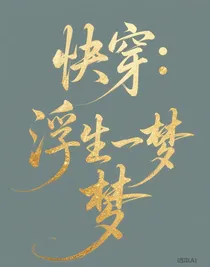 快穿：
浮生一梦
梦